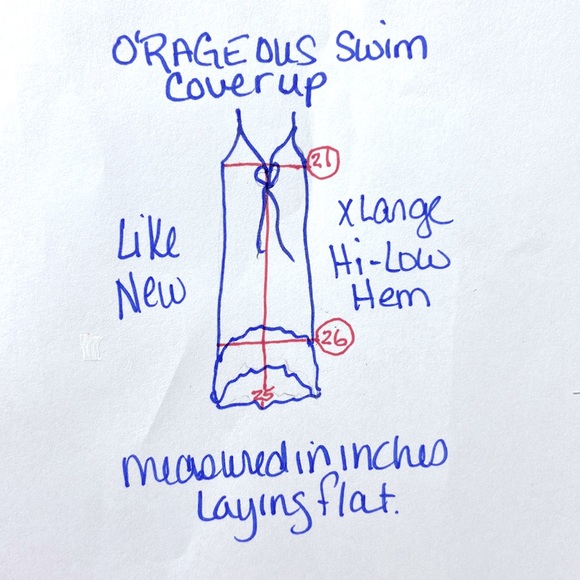 O'RAGEOUS Swim
Coverup
21
Like
New
XLarge
Hi-Low
Hem
26
25
measured in inches
Laying flat.